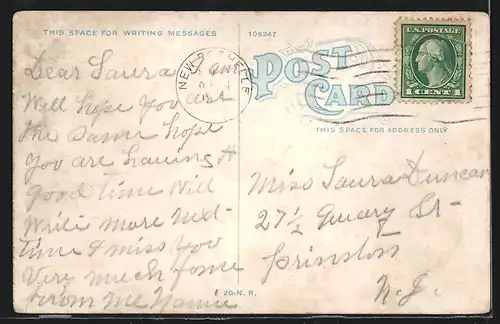 THIS SPACE FOR WRITING MESSAGES
106247
Dear Laura I am
Well hope you are
the same hope
you are having a
good time Will
Write more next
time I miss you
Very much
from
NEW ROCHELLE
POST
CARD
U.S. POSTAGE
1 CENT 1
THIS SPACE FOR ADDRESS ONLY
Miss Laura Duncan
27½ Quary St
Prinston
N.J.
20-N.R.